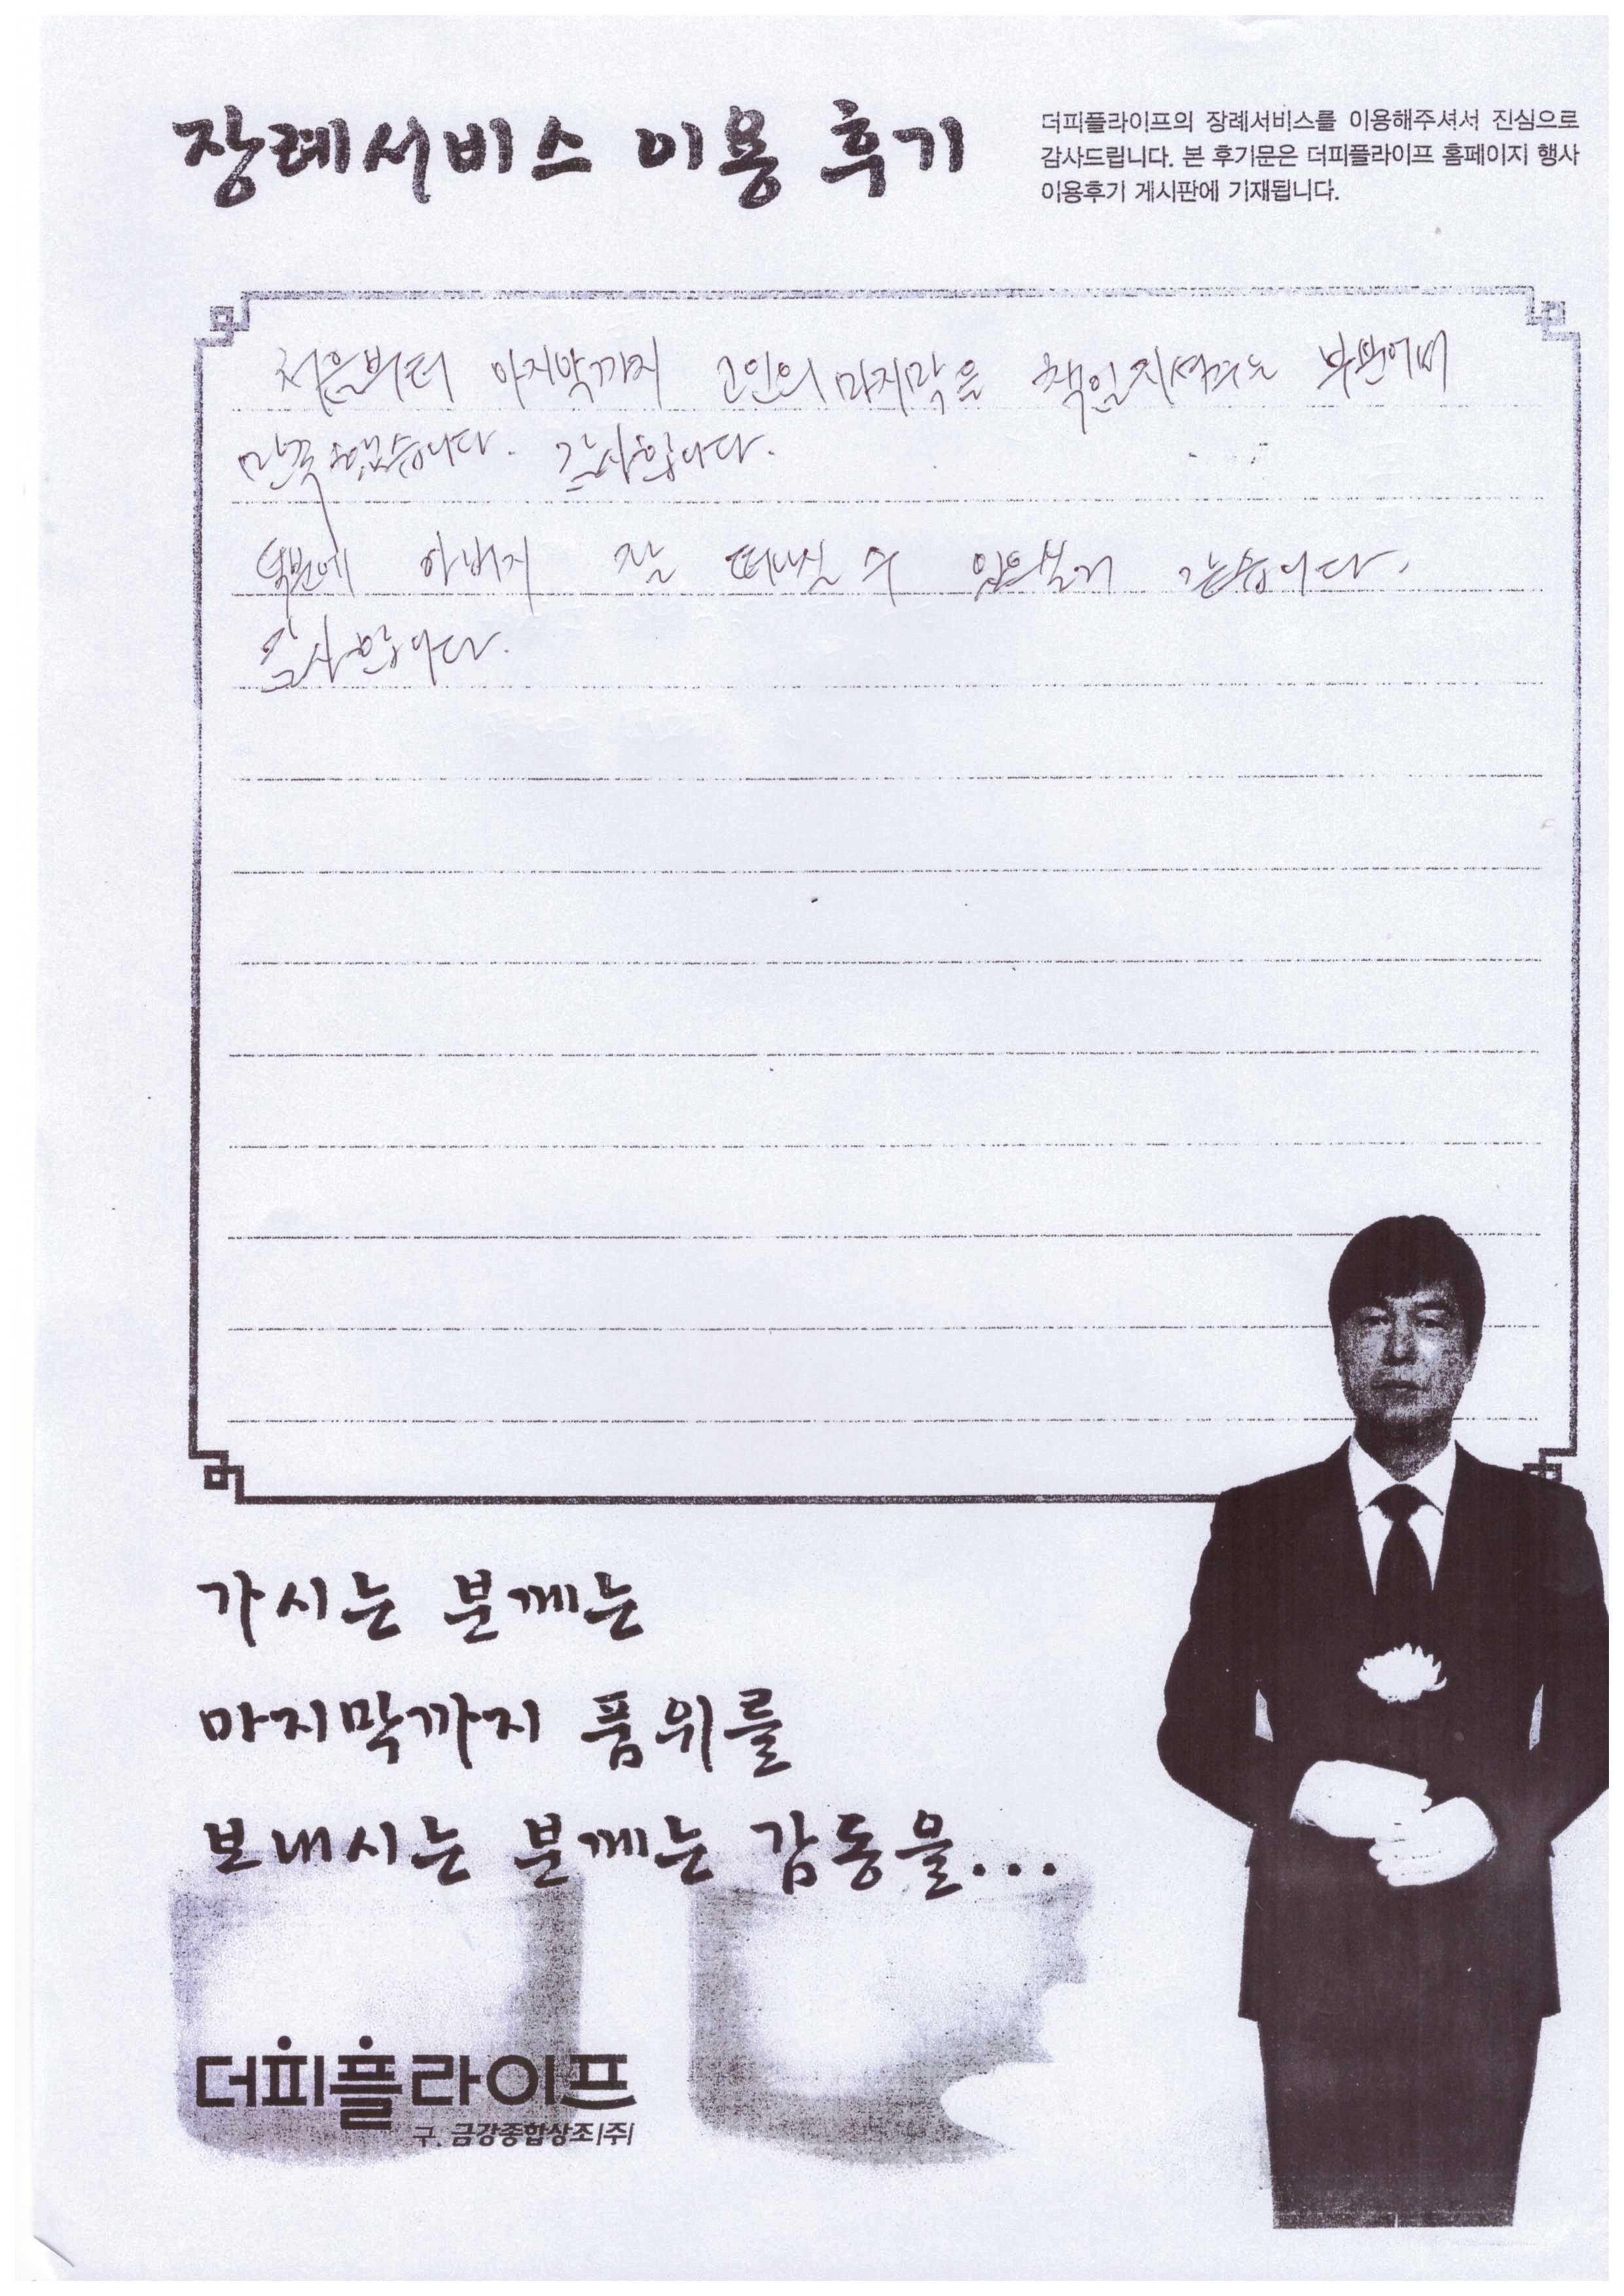 장례서비스 이용 후기
더피플라이프의 장례서비스를 이용해주셔서 진심으로
감사드립니다. 본 후기문은 더피플라이프 홈페이지 행사
이용후기 게시판에 기재됩니다.
처음부터 마지막까지 고인의 마지막을 책임지셔주는 부분에
만족했습니다. 감사합니다.
덕분에 아버지 잘 떠나실 수 같습니다.
감사합니다.
가시는 분께는
마지막까지 품위를
보내시는 분께는 감동을...
더피플라이프
구. 금강종합상조(주)